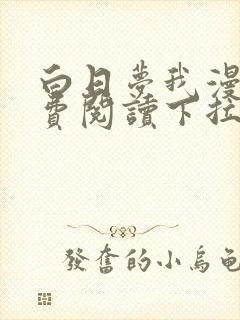 白日夢我漫
費閱讀下拉
發奮的小烏龜